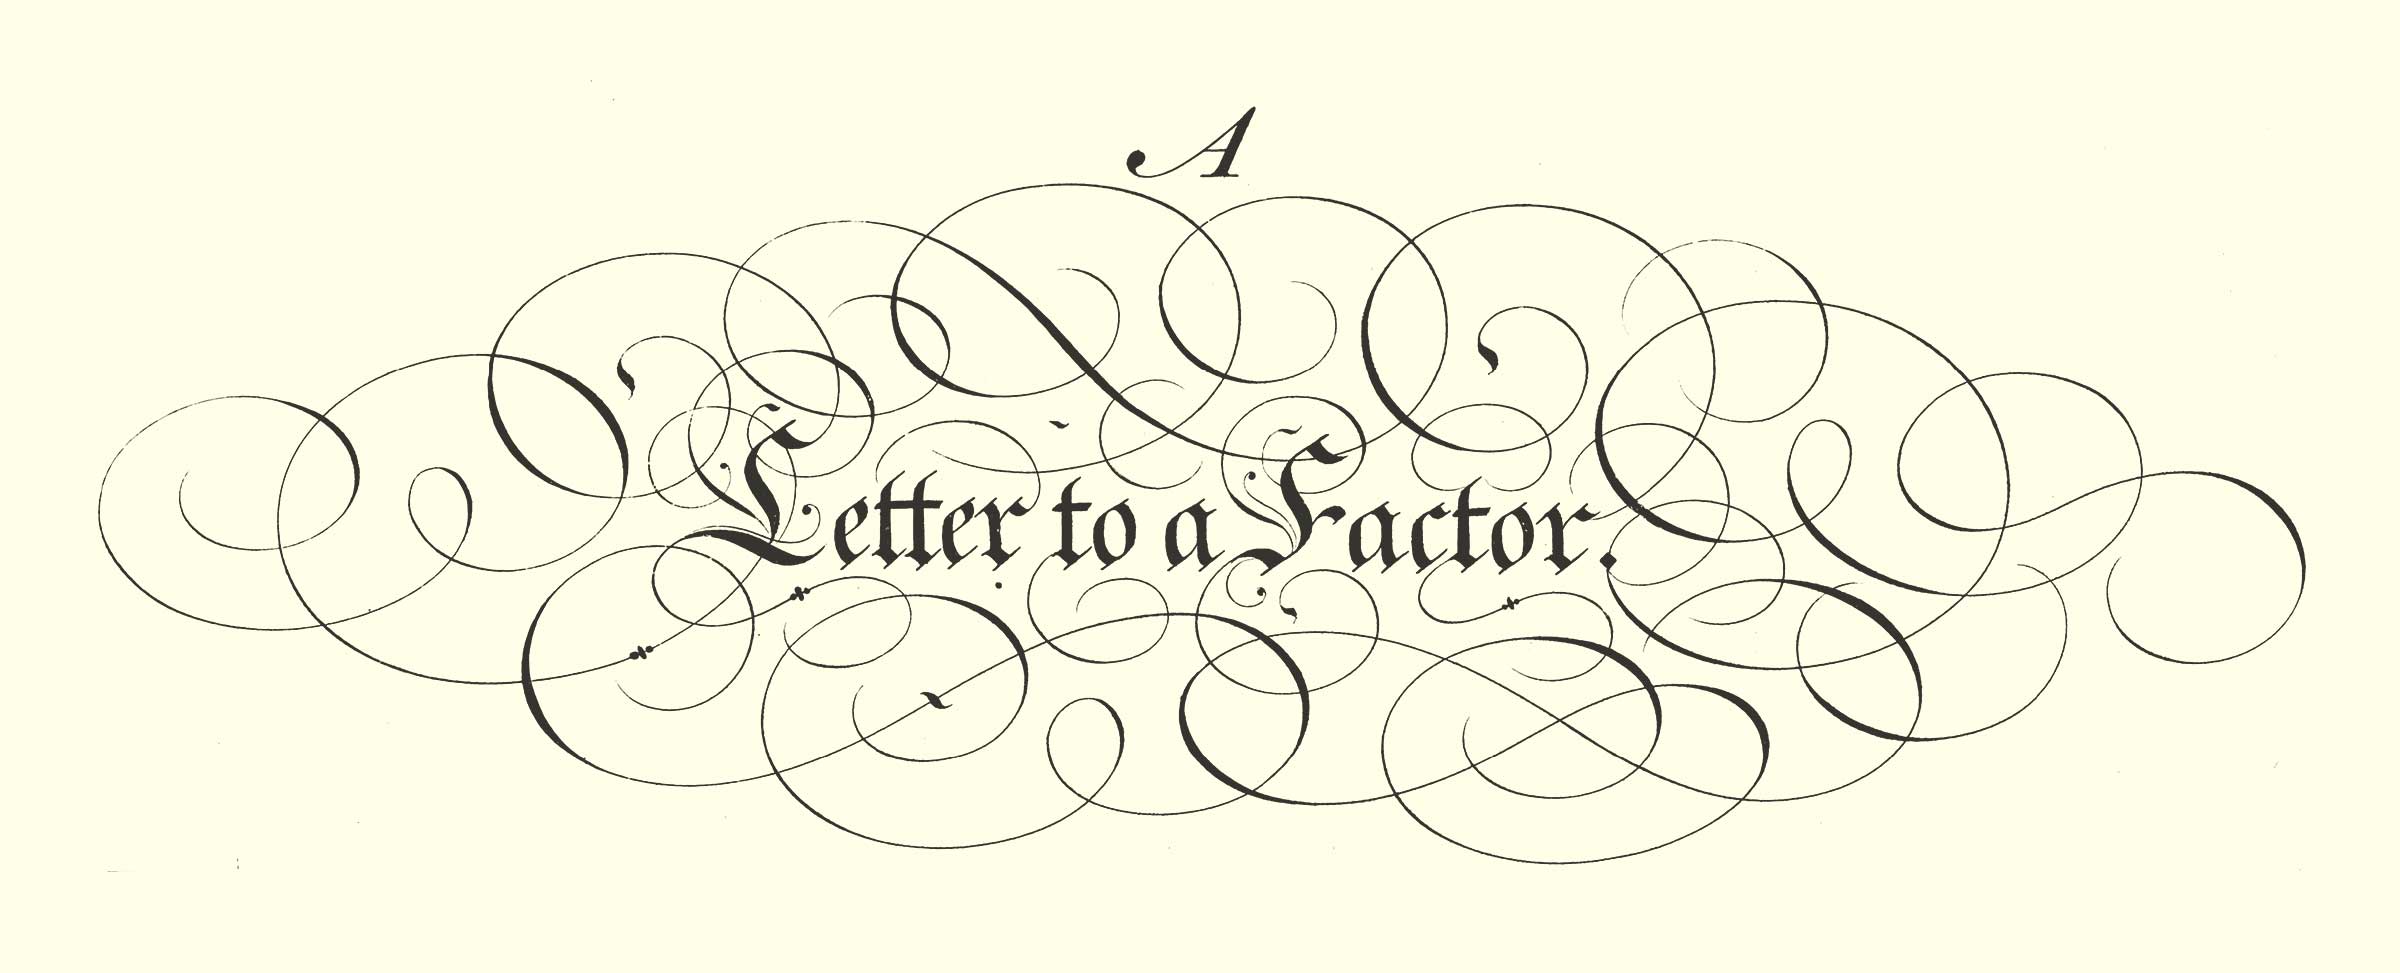 A
Letter to a Factor.